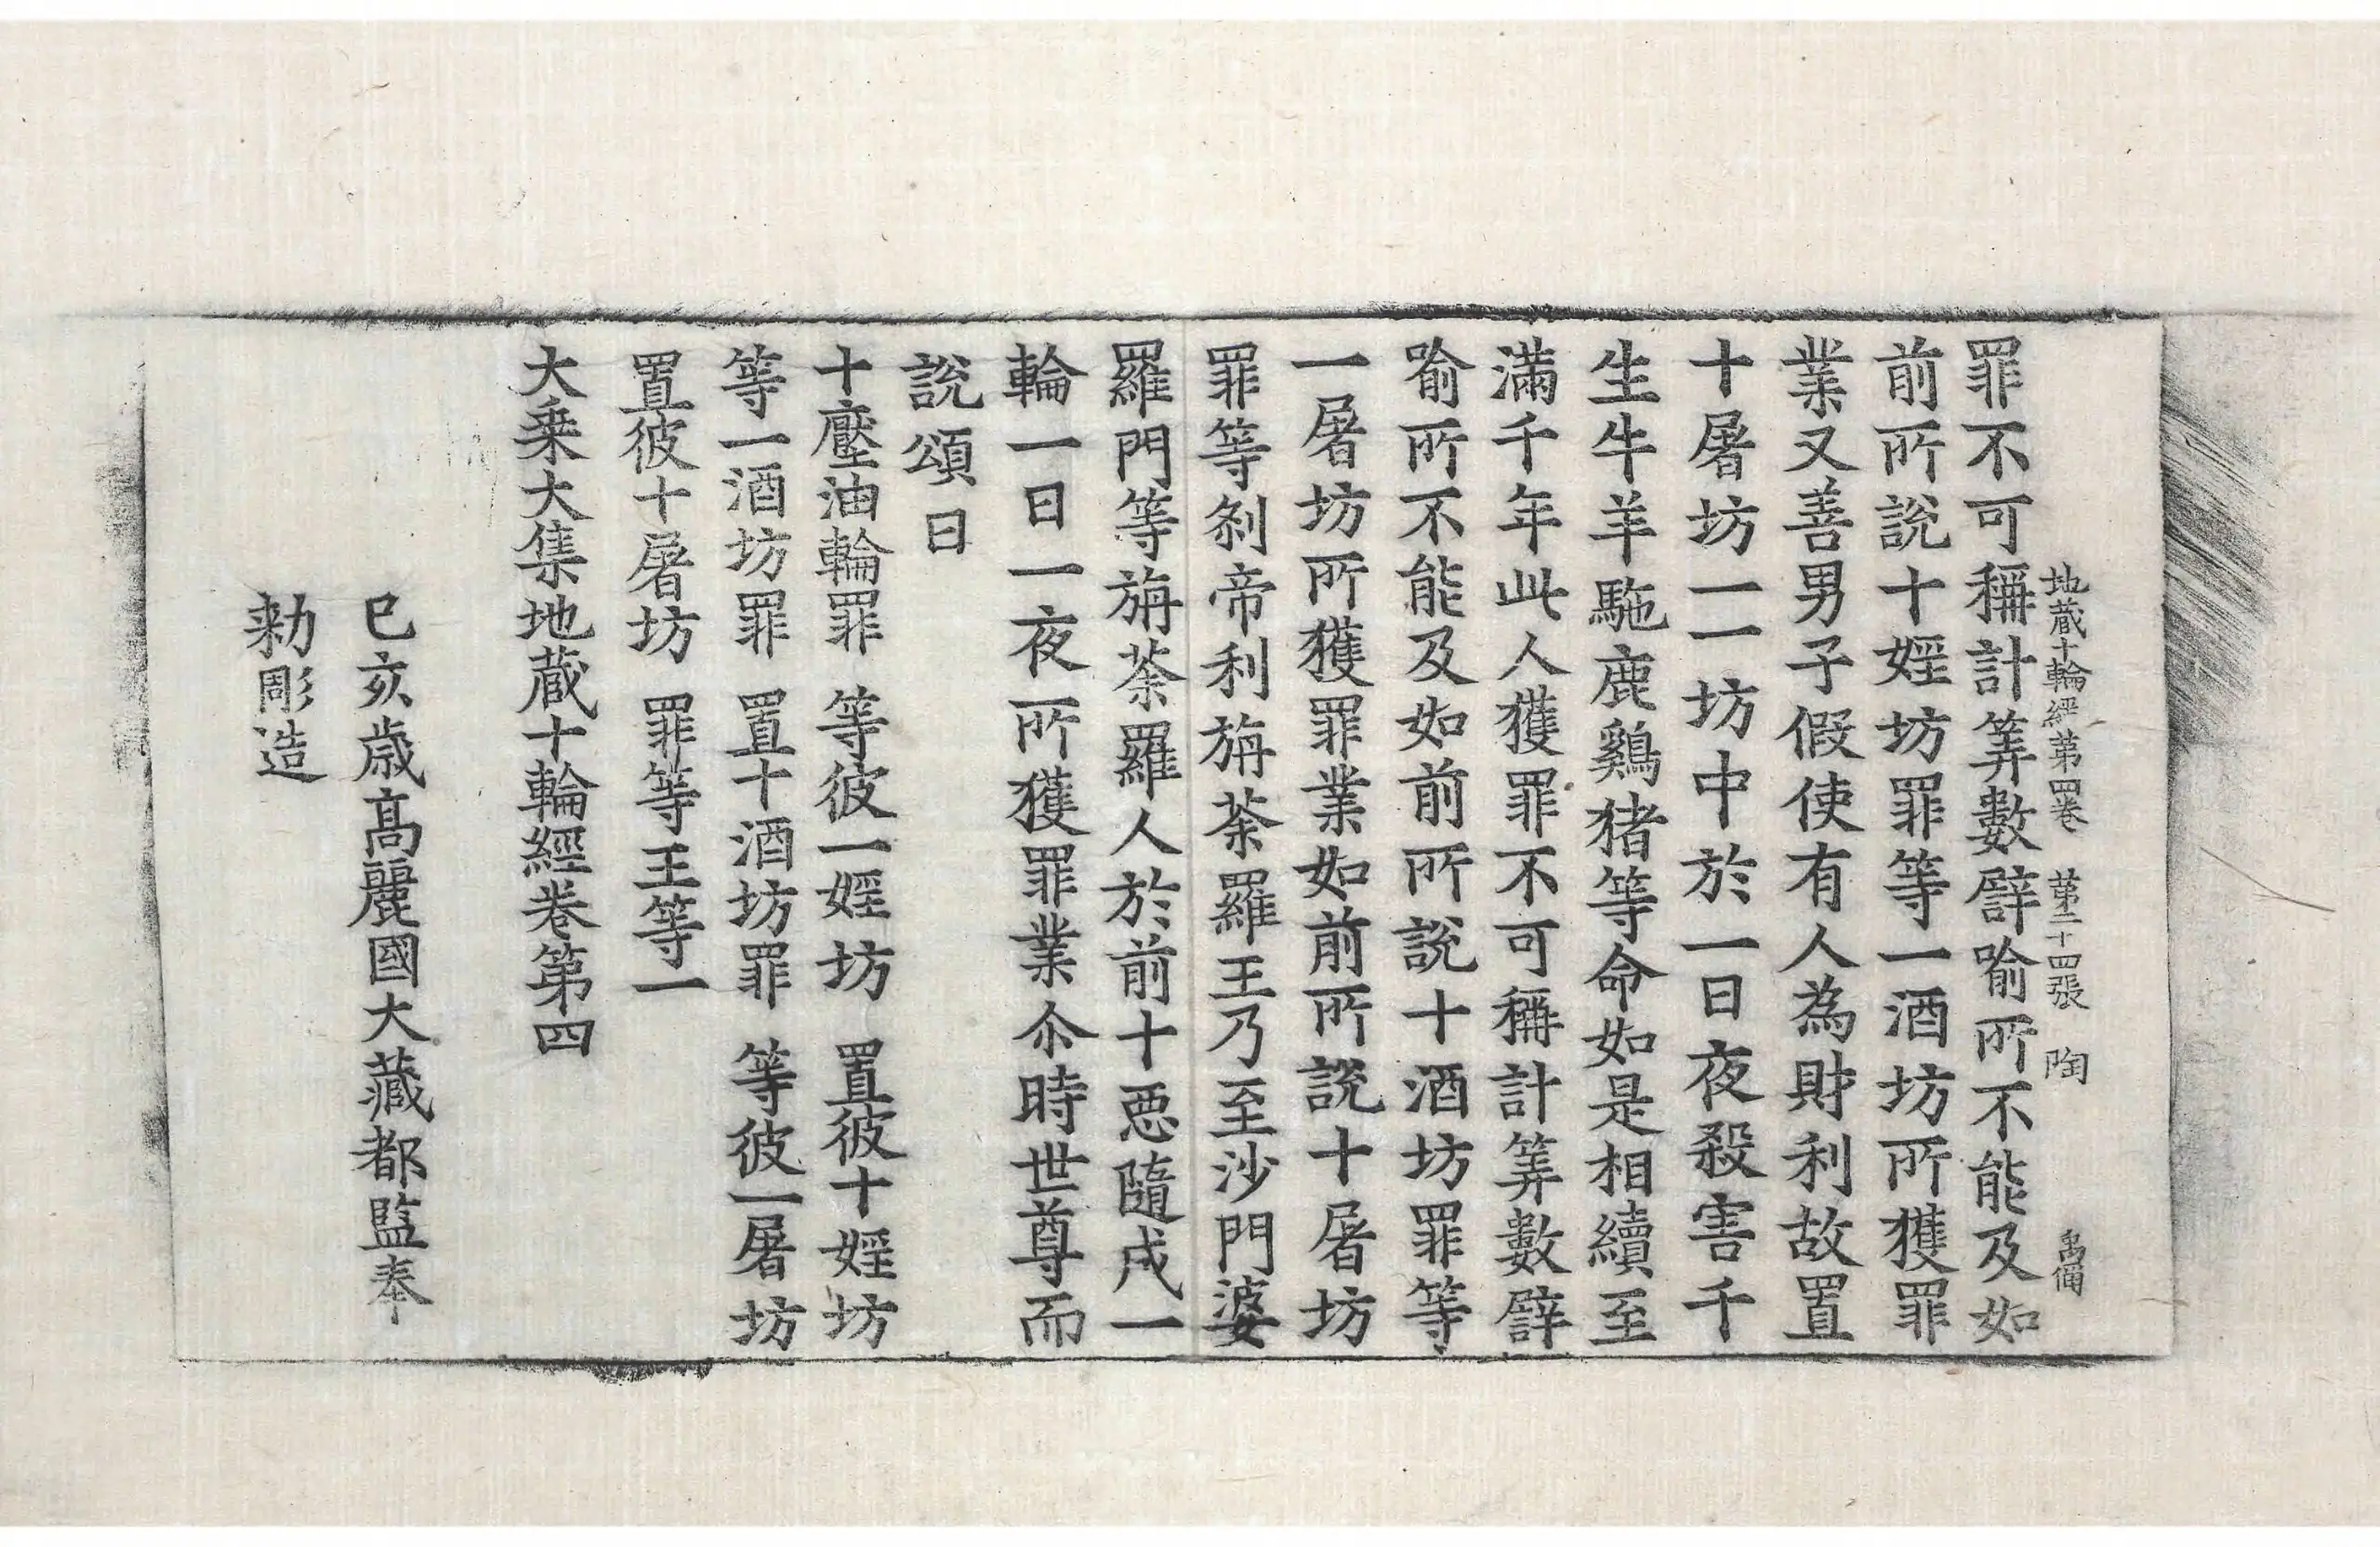 地蔵十輪經第四卷 第二十四張 陶
罪不可稱計筭數譬喻所不能及如
前所說十婬坊罪等一酒坊所獲罪
業又善男子假使有人為財利故置
十屠坊一一坊中於一日夜殺害千
生牛羊駞鹿雞猪等命如是相續至
滿千年此人獲罪不可稱計筭數譬
喻所不能及如前所說十酒坊罪等
一屠坊所獲罪業如前所說十屠坊
罪等剎帝利旃荼羅王乃至沙門婆
羅門等旃荼羅人於前十惡隨成一
輪一日一夜所獲罪業尒時世尊而
說頌曰
十壓油輪罪 等彼一婬坊 置彼十婬坊
等一酒坊罪 置十酒坊罪 等彼一屠坊
置彼十屠坊 罪等王等一
大乗大集地蔵十輪經卷第四
巳亥歲高麗國大藏都監奉
勑彫造